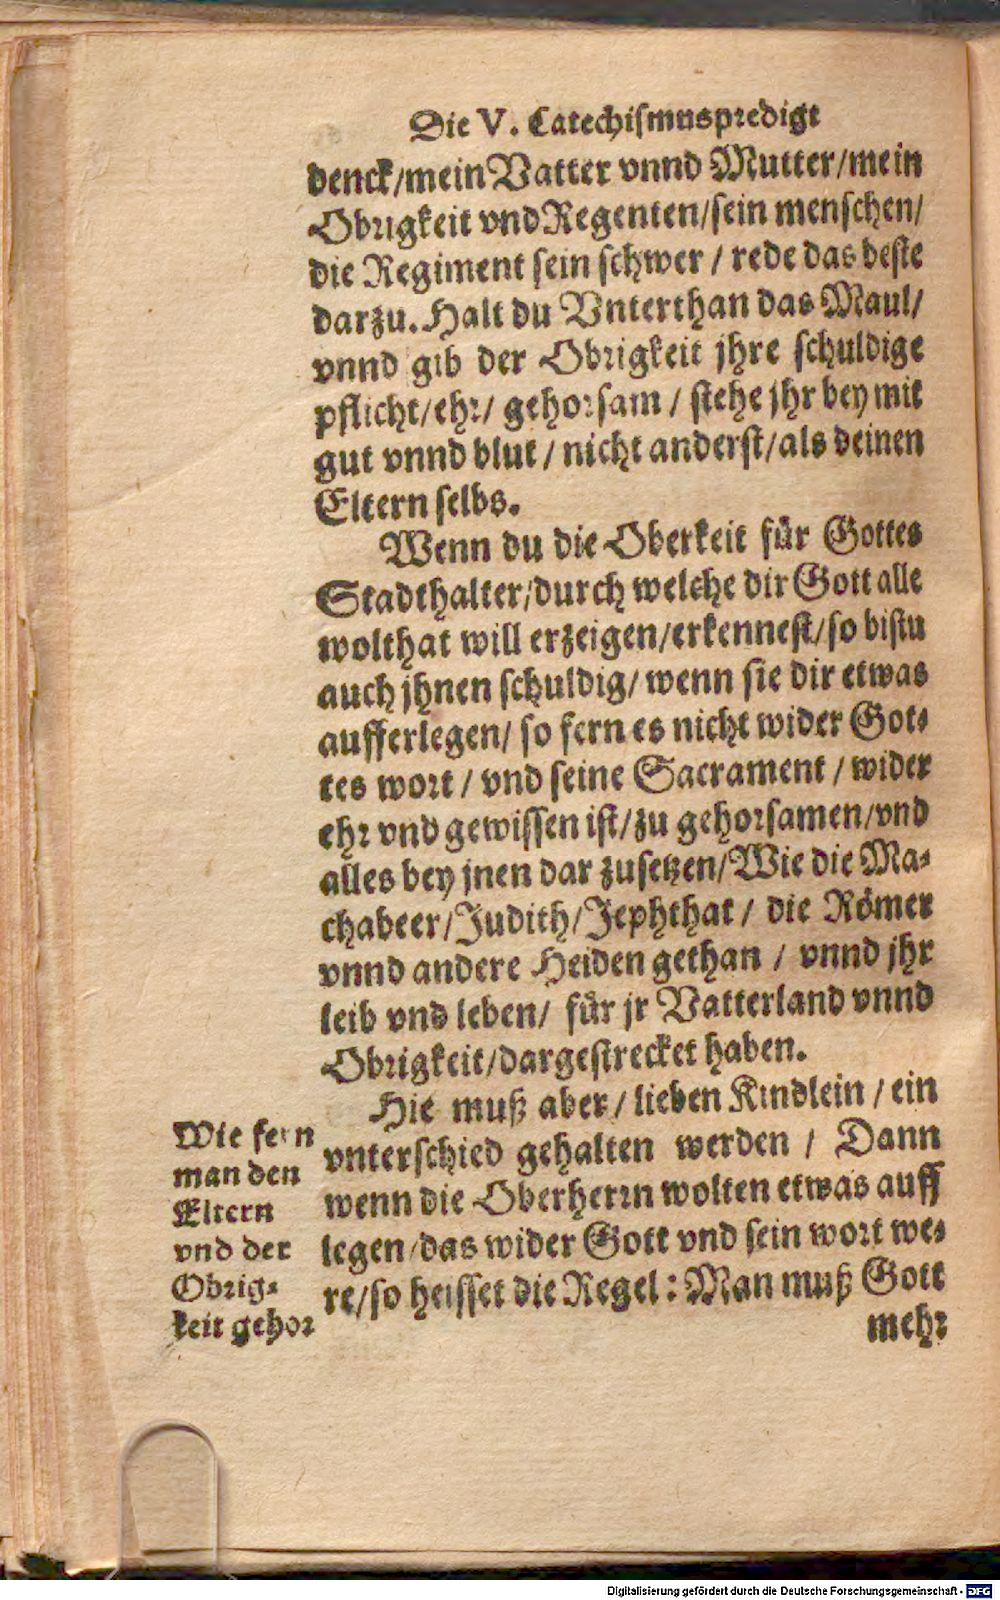 Die V. Catechismuspredigt
denck/mein Vatter vnnd Mutter/mein
Obrigkeit vnd Regenten/sein menschen/
die Regiment sein schwer / rede das beste
darzu. Halt du Vnterthan das Maul/
vnnd gib der Obrigkeit jhre schuldige
pflicht/ehr/ gehorsam / stehe jhr bey mit
gut vnnd blut / nicht anderst/als deinen
Eltern selbs.
Wenn du die Oberkeit für Gottes
Stadthalter/durch welche dir Gott alle
wolthat will erzeigen/erkennest/so bistu
auch jhnen schuldig/ wenn sie dir etwas
aufferlegen/ so fern es nicht wider Got-
tes wort / vnd seine Sacrament / wider
ehr vnd gewissen ist/zu gehorsamen/vnd
alles bey jnen dar zusetzen/Wie die Ma-
chabeer/Judith/Jephthat / die Römer
vnnd andere Heiden gethan / vnnd jhr
leib vnd leben/ für jr Vatterland vnnd
Obrigkeit/dargestrecket haben.
Hie muß aber / lieben Kindlein / ein
vnterschied gehalten werden / Dann
wenn die Oberherrn wolten etwas auff
legen/das wider Gott vnd sein wort we-
re/so heisset die Regel: Man muß Gott
mehr
Wie fern
man den
Eltern
vnd der
Obrig-
keit gehor
Digitalisierung gefördert durch die Deutsche Forschungsgemeinschaft - DFG